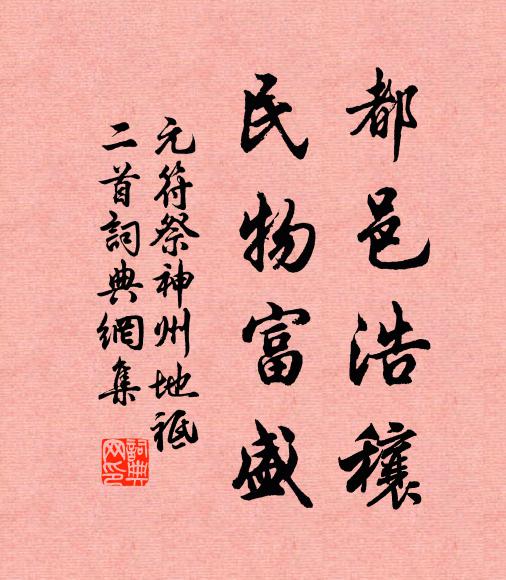 都邑浩穰
民物富盛
元符祭神州地祇
二首詞典網集
詞典
网印